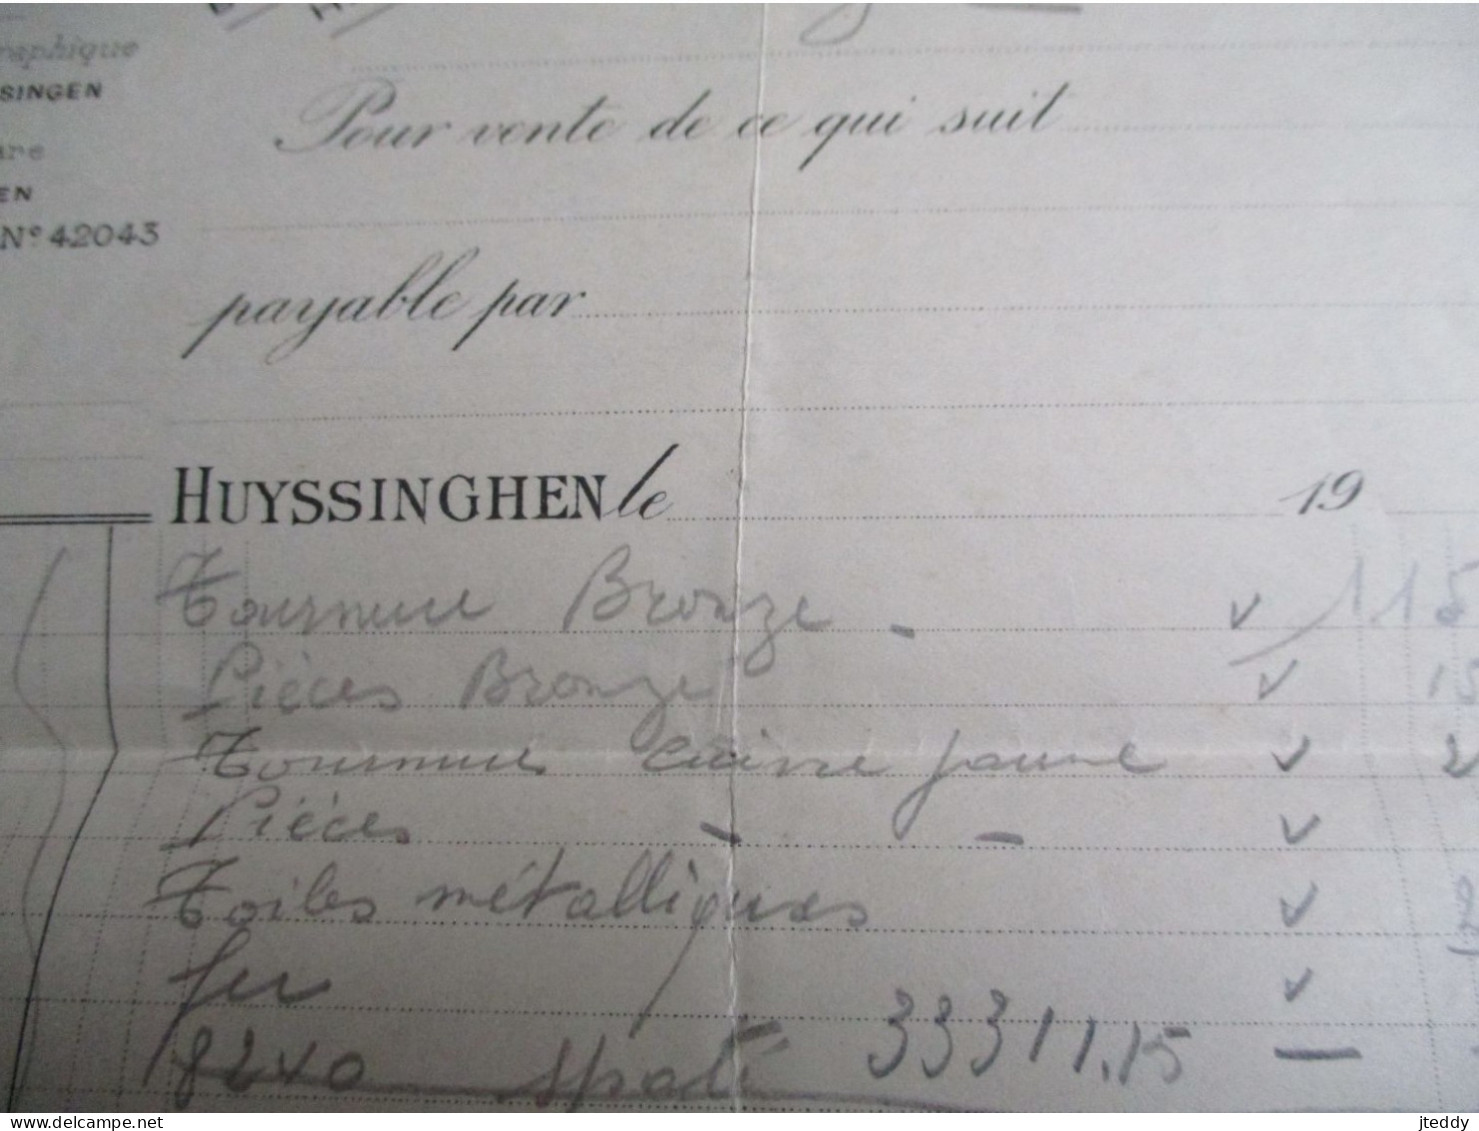 raphique
SINGEN
Pour vente de ce qui suit
are
EN
N° 42043
payable par
HUYSSINGHEN le 19
Tournure Bronze - v 115
Pièces Bronze v 15
Tournure cuivre jaune v 2
Pièces - - v
Toiles métalliques v 12
fer v
33311.15 —
delcampe.net
jteddy